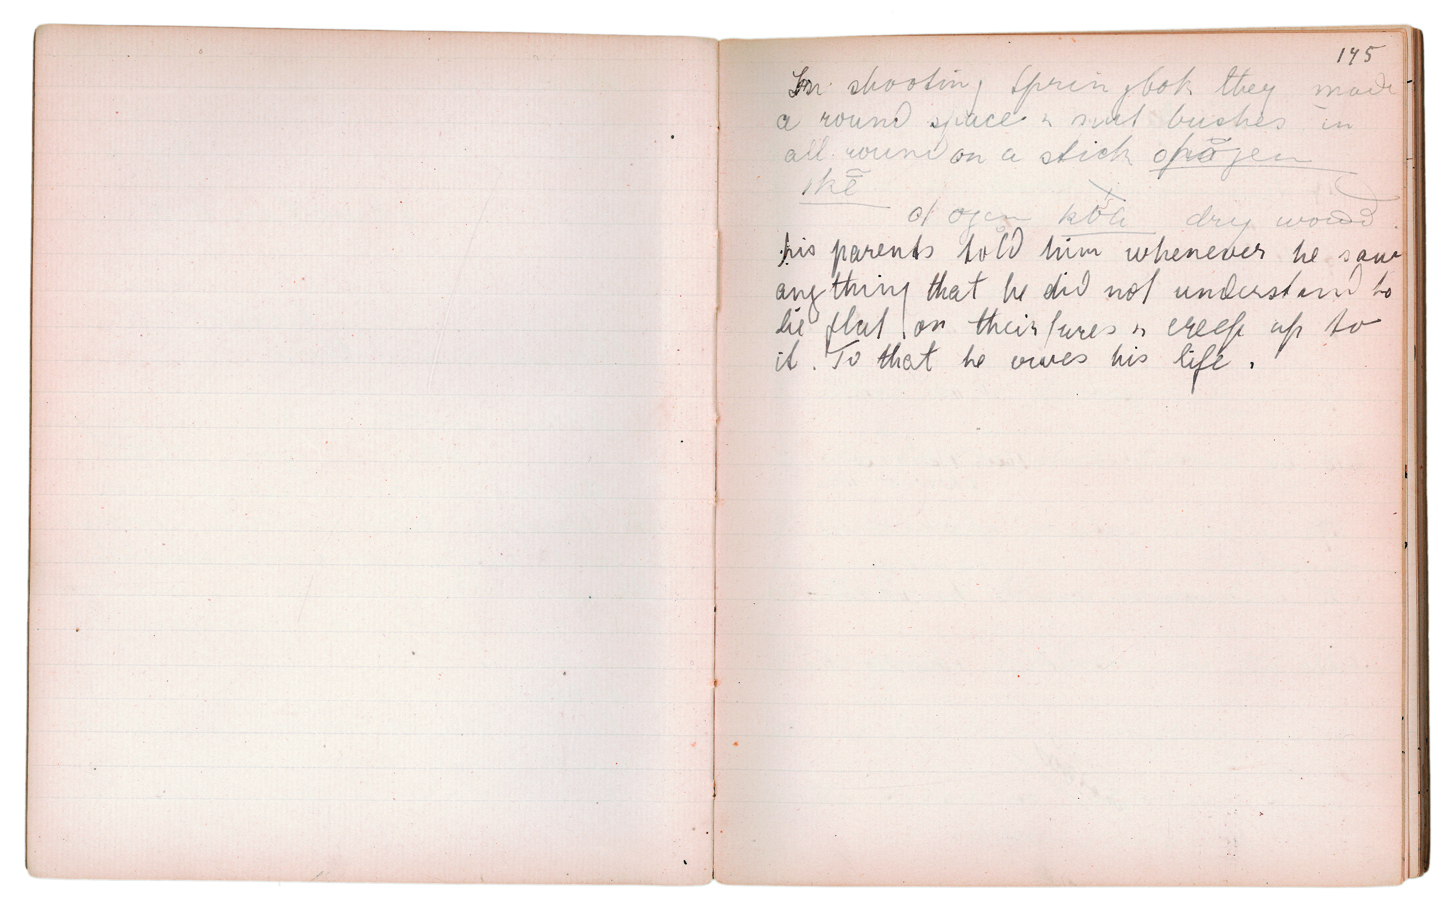 145
In shooting Springbok they made
a round space & bushes in
all round on a stick
dry wood
his parents told him whenever he saw
any thing that he did not understand to
lie flat on their faces & creep up to
it. To that he owes his life.